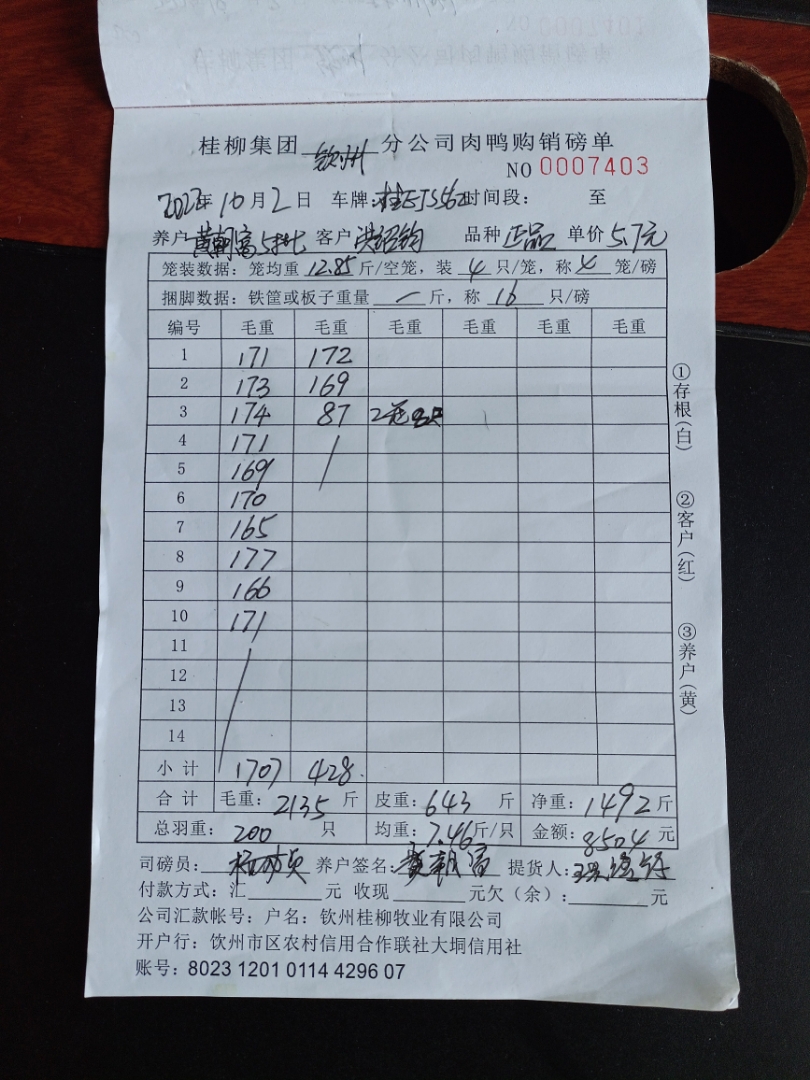 桂柳集团 钦州 分公司肉鸭购销磅单
NO 0007403
2022年 10月 2日 车牌: 桂EJS562 时间段: 至
养户 黄朝富5批 客户 洪绍钧 品种 正品 单价 5.7元
笼装数据: 笼均重 12.85 斤/空笼, 装 4 只/笼, 称 4 笼/磅
捆脚数据: 铁筐或板子重量 — 斤, 称 16 只/磅
编号 毛重 毛重 毛重 毛重 毛重 毛重
1 171 172
2 173 169
3 174 87 2笼8只
4 171
5 169
6 170
7 165
8 177
9 166
10 171
11
12
13
14
小计 1707 428
合计 毛重: 2135 斤 皮重: 643 斤 净重: 1492 斤
总羽重: 200 只 均重: 7.46 斤/只 金额: 8504 元
司磅员: 养户签名: 黄朝富 提货人:
付款方式: 汇 元 收现 元欠(余): 元
公司汇款帐号: 户名: 钦州桂柳牧业有限公司
开户行: 钦州市区农村信用合作联社大垌信用社
账号: 8023 1201 0114 4296 07
①存根(白)
②客户(红)
③养户(黄)